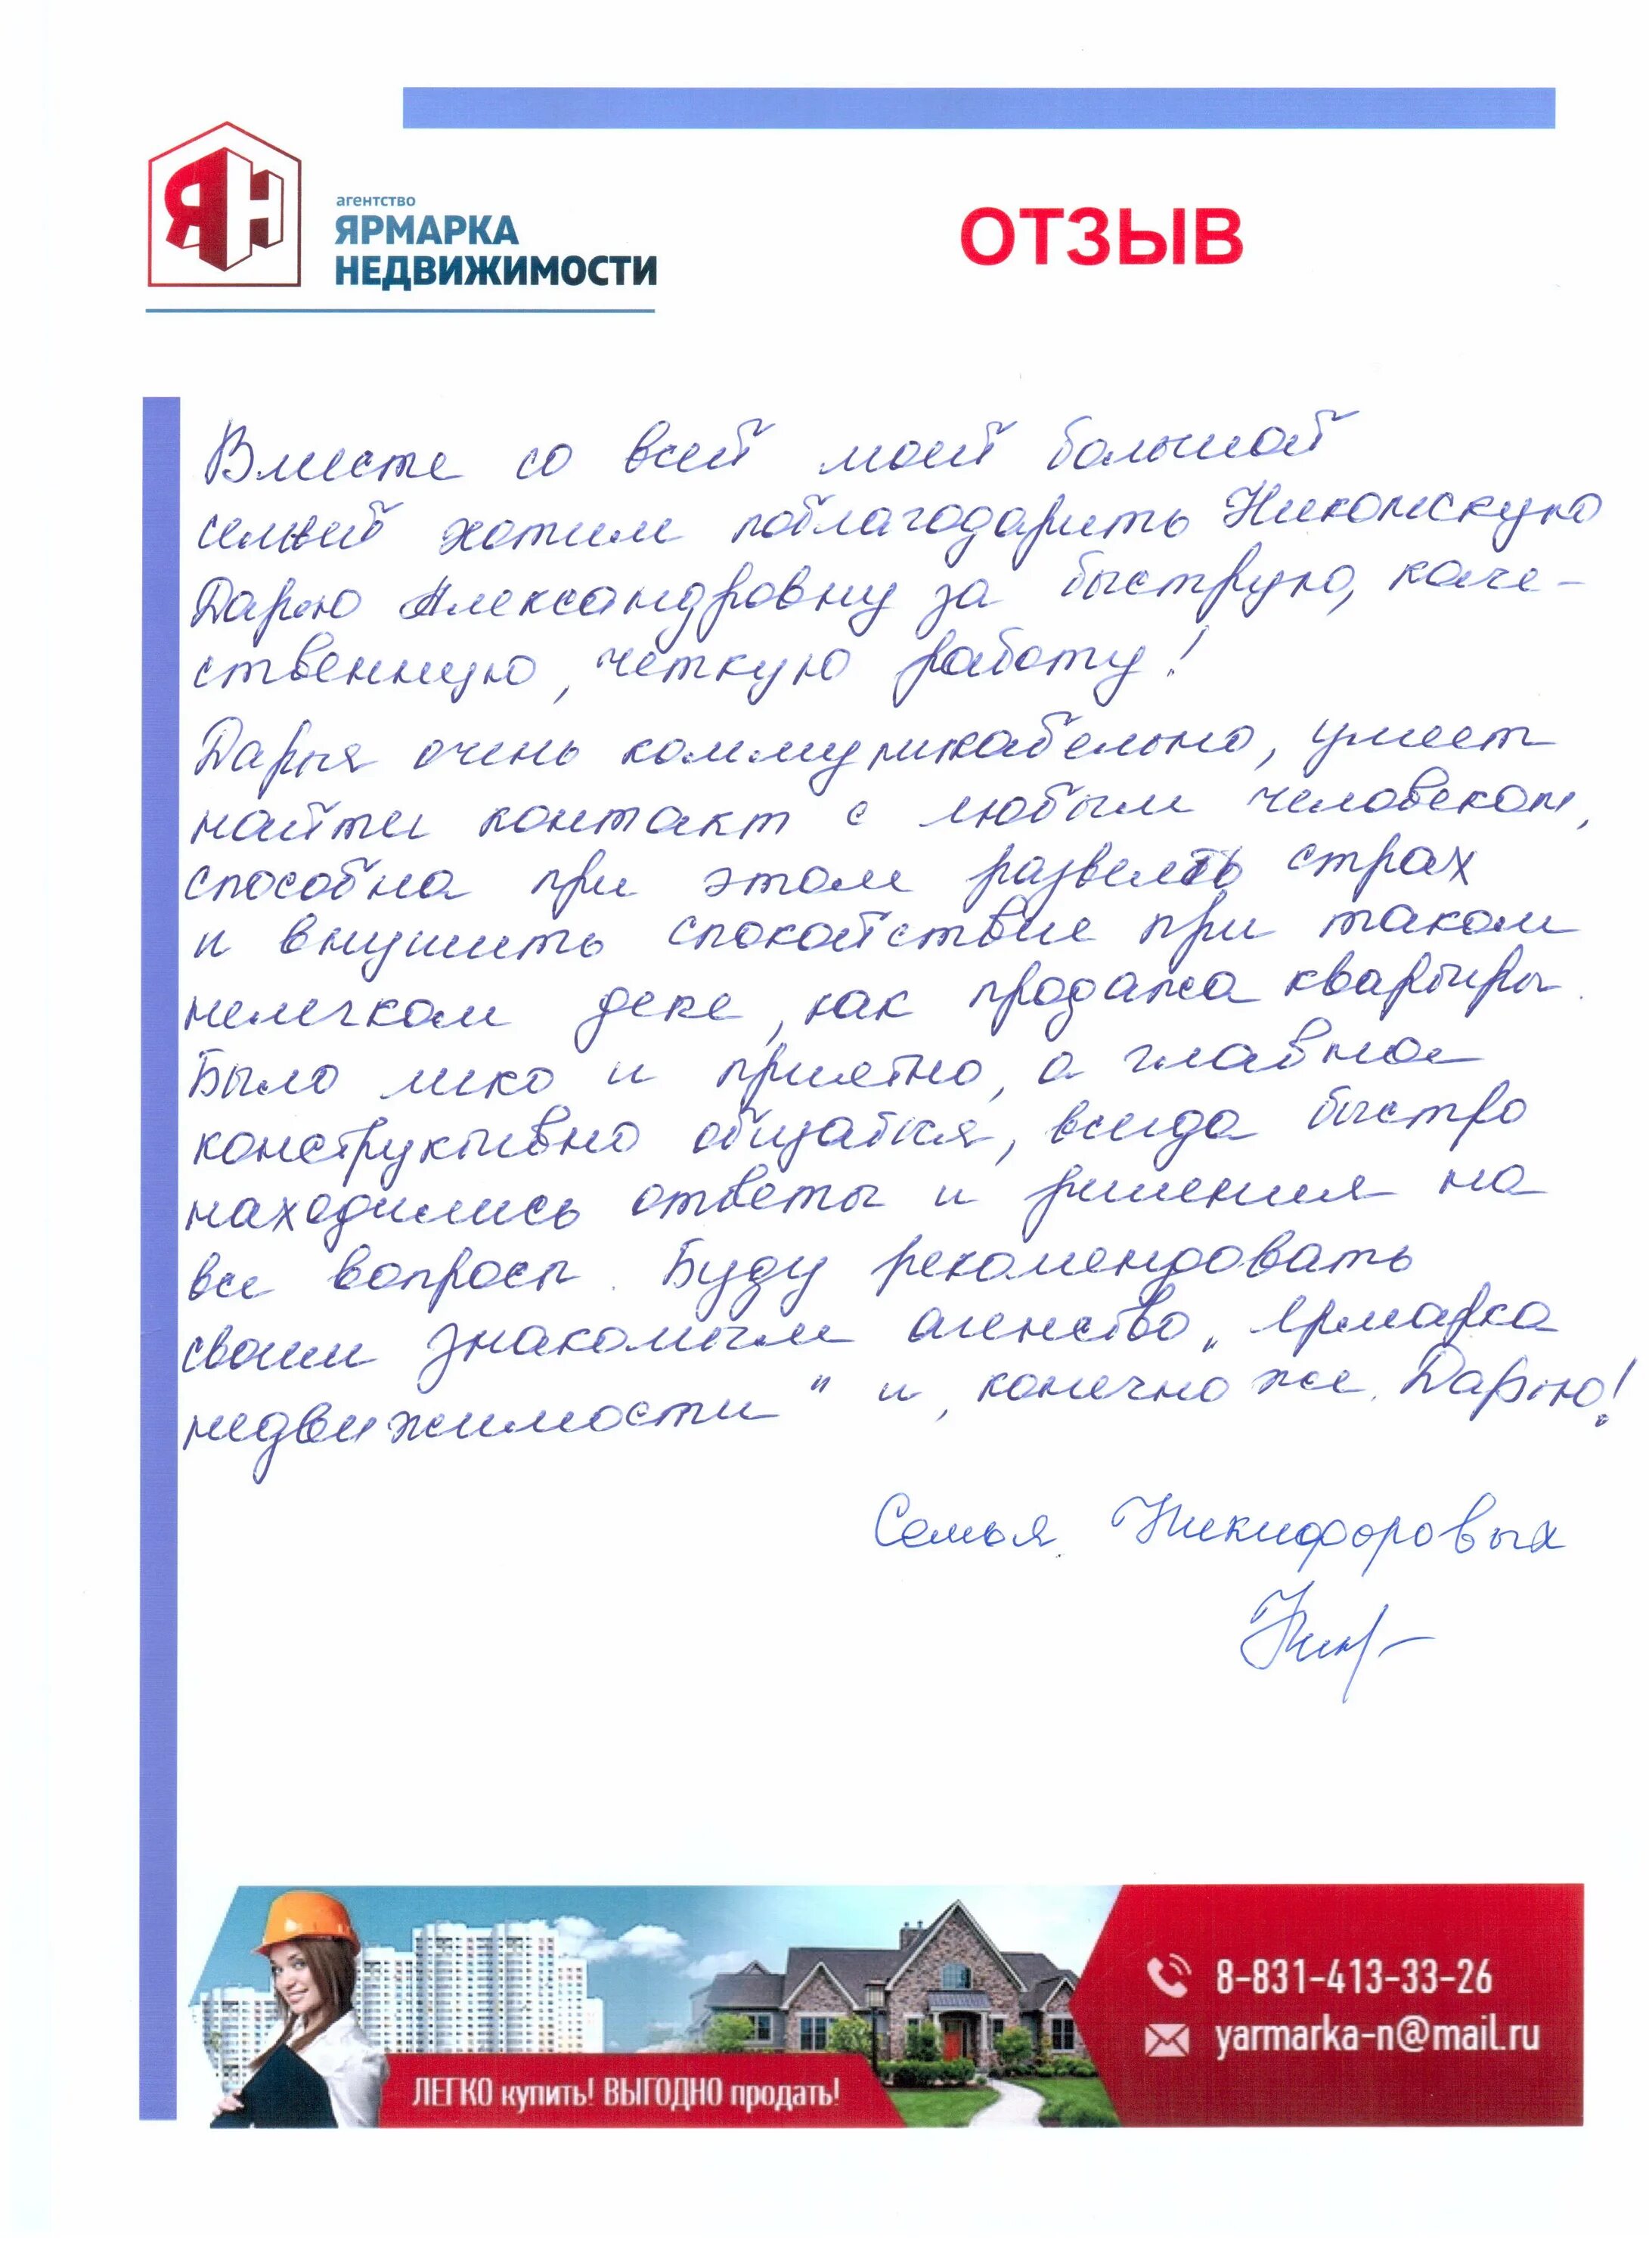 ЯН
агентство
ЯРМАРКА
НЕДВИЖИМОСТИ
ОТЗЫВ
Вместе со всей моей большой
семьей хотим поблагодарить Никольскую
Дарью Александровну за быструю, каче-
ственную, четкую работу!
Дарья очень коммуникабельна, умеет
найти контакт с любым человеком,
способна при этом развеять страх
и внушить спокойствие при таком
нелегком деле, как продажа квартиры.
Было легко и приятно, а главное
конструктивно общаться, всегда быстро
находились ответы и решения на
все вопросы. Буду рекомендовать
своим знакомым агенство „Ярмарка
недвижимости" и, конечно же, Дарью!
Семья Никифоровых
8-831-413-33-26
yarmarka-n@mail.ru
ЛЕГКО купить! ВЫГОДНО продать!